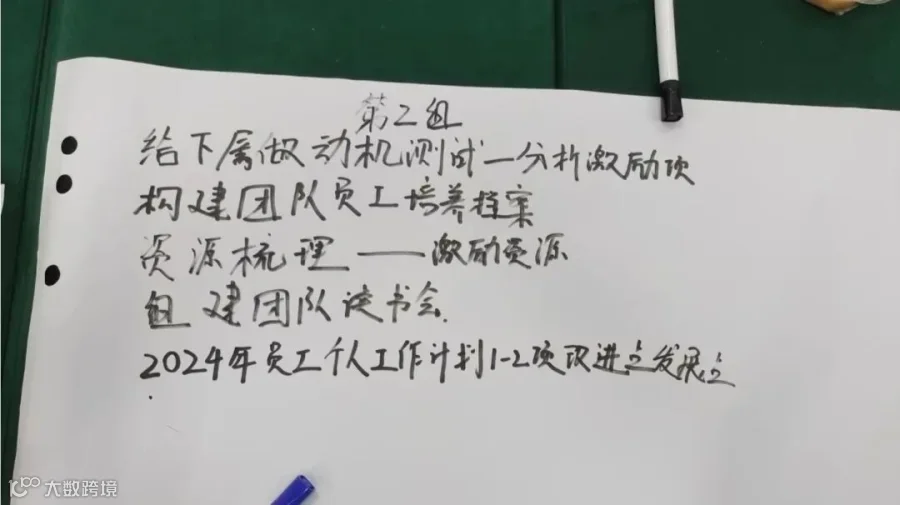 第2组
给下属做动机测试—分析激励项
构建团队员工培养档案
资源梳理——激励资源
组建团队读书会.
2024年员工个人工作计划1-2项改进点发展点
大数跨境